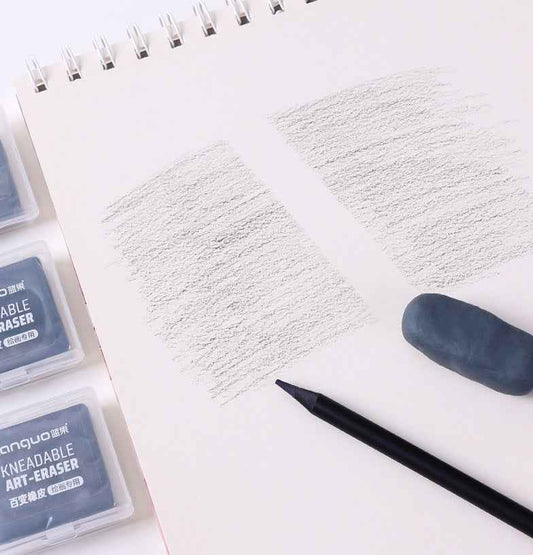 uo 蓝果
ABLE
RASER
绘画专用
anguo 蓝果
KNEADABLE
ART-ERASER
百变橡皮 绘画专用